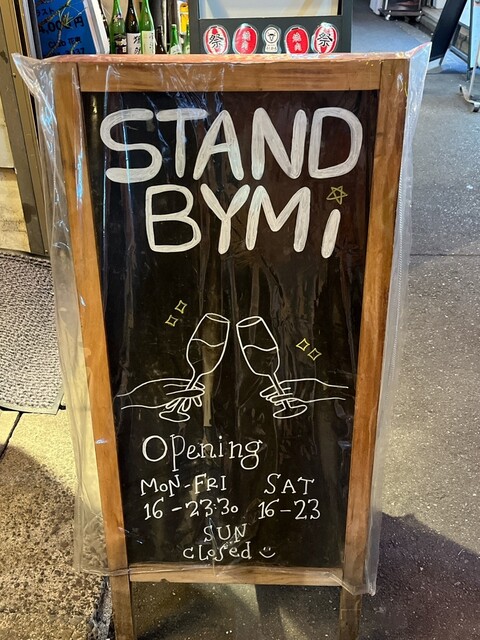 STAND
BYMi
Opening
MON-FRI SAT
16-23:30 16-23
SUN
closed
祭
祭